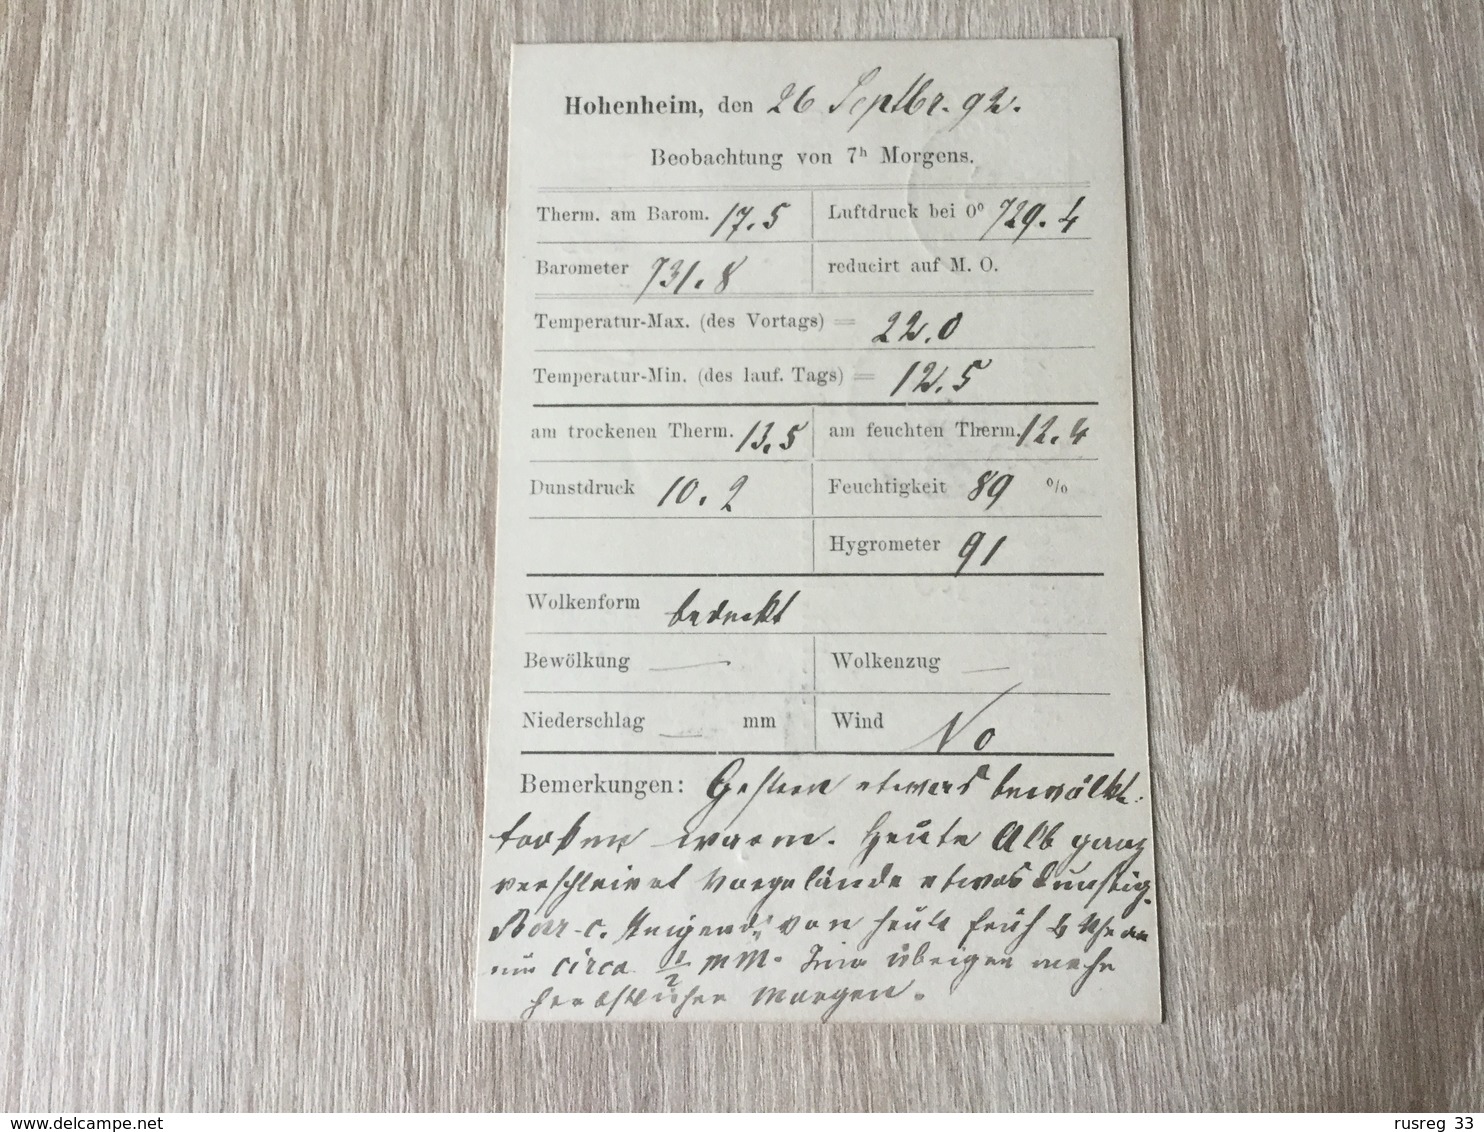 Hohenheim, den 26 Septbr. 92.
Beobachtung von 7ʰ Morgens.
Therm. am Barom. 17.5 Luftdruck bei 0° 729.4
Barometer 731.8 reducirt auf M. O.
Temperatur-Max. (des Vortags) = 22.0
Temperatur-Min. (des lauf. Tags) = 12.5
am trockenen Therm. 13.5 am feuchten Therm. 12.4
Dunstdruck 10.2 Feuchtigkeit 89 %
Hygrometer 91
Wolkenform bedeckt
Bewölkung — Wolkenzug —
Niederschlag — mm Wind No
Bemerkungen: Gestern etwas bewölkt.
warm. Heute Alb ganz
verschleiert Vorgelände etwas dunstig.
Bar. steigend, von heute früh 6 Uhr an
um circa 1/2 mm. Im übrigen mehr
herbstlicher Morgen.
delcampe.net
rusreg 33